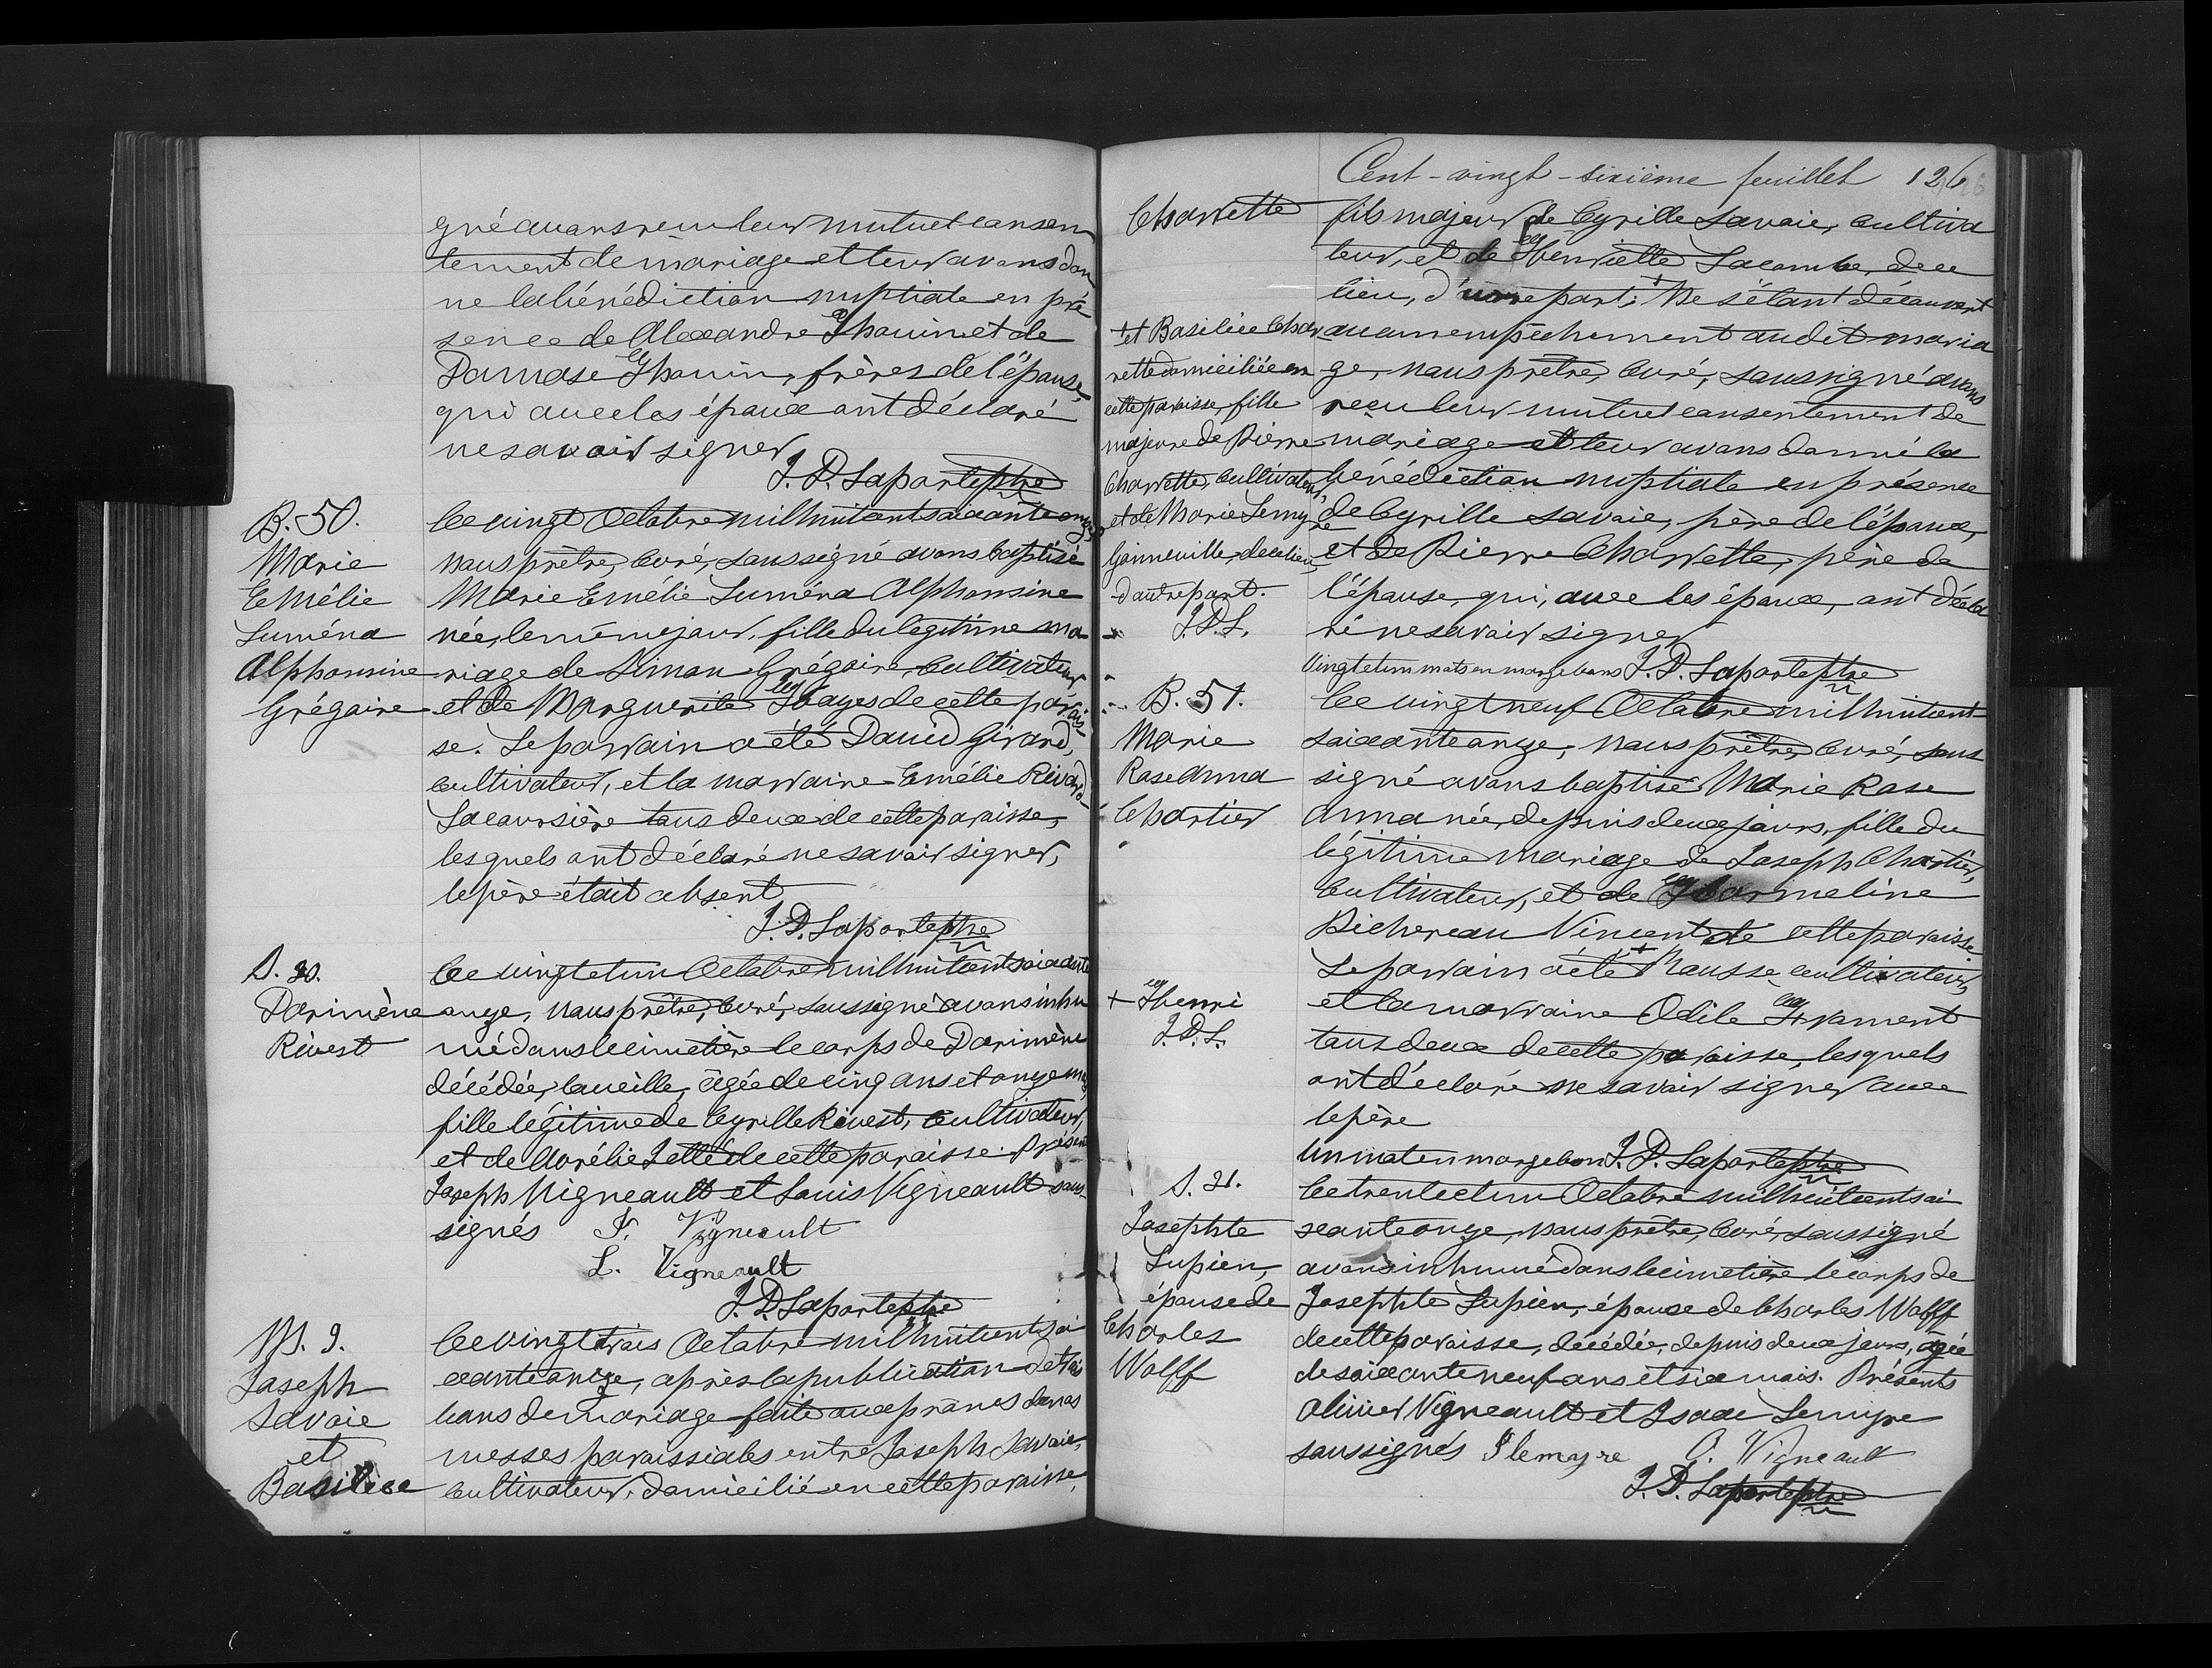 gné avons reçu leur mutuel consen
tement de mariage et leur avons don
né la bénédiction nuptiale en pré
sence de Alexandre Houin et de
Damase Houin, frères de l'épouse,
qui avec les époux ont déclaré
ne savoir signer
J. D. Laporte ptre
B. 50.
Marie
Emélie
Luména
Alphonsine
Grégoire
Ce vingt Octobre mil huit cent soixante onze,
nous prêtre, curé, soussigné avons baptisé
Marie Emélie Luména Alphonsine
née, le même jour, fille du légitime ma
riage de Simon Grégoire, cultivateur
et de Marguerite Hayes de cette parois
se. Le parrain a été David Girard,
cultivateur, et la marraine Emélie Rivard
Lacoursière tous deux de cette paroisse,
lesquels ont déclaré ne savoir signer,
le père était absent
J. D. Laporte ptre
S. 20.
Dorimène
Rivest
Ce vingt et un Octobre mil huit cent soixante
onze, nous prêtre, curé, soussigné avons inhu
mé dans le cimetière le corps de Dorimène
décédée, la veille, âgée de cinq ans et onze mois,
fille légitime de Cyrille Rivest, cultivateur,
et de Aurélie Jetté de cette paroisse. Présents
Joseph Vigneault et Louis Vigneault sous
signés J. Vigneault
L. Vigneault
J. D. Laporte ptre
M. 9.
Joseph
Savoie
et
Basilice
Ce vingt trois Octobre mil huit cent soi
xante onze, après la publication de trois
bans de mariage faite aux prônes de nos
messes paroissiales entre Joseph Savoie,
cultivateur, domicilié en cette paroisse,
Cent-vingt-sixième feuillet 126
Charrette
fils majeur de Cyrille Savoie, cultiva
teur, et de Henriette Lacombe, de ce
lieu, d'une part; + Ne s'étant découvert
aucun empêchement au dit maria
ge, nous prêtre, curé, soussigné avons
reçu leur mutuel consentement de
mariage et leur avons donné la
bénédiction nuptiale en présence
de Cyrille Savoie, père de l'époux,
et de Pierre Charrette, père de
l'épouse, qui, avec les époux, ont décla
ré ne savoir signer
Vingt et un mots en marge bons J. D. Laporte ptre
+ et Basilice Char
rette domiciliée en
cette paroisse, fille
majeure de Pierre
Charrette, cultivateur,
et de Marie Lemyre
Gonneville, de ce lieu,
d'autre part.
J. D. L.
B. 51.
Marie
Rose Anna
Chartier
Ce vingt neuf Octobre mil huit cent
soixante onze, nous prêtre, curé, sous
signé avons baptisé Marie Rose
Anna née, depuis deux jours, fille du
légitime mariage de Joseph Chartier,
cultivateur, et de Harmeline
Bichereau Vincent de cette paroisse
Le parrain a été + Hausse cultivateur,
et la marraine Odile
tous deux de cette paroisse, lesquels
ont déclaré ne savoir signer avec
le père
Un mot en marge bon J. D. Laporte ptre
+ Henri
J. D. L.
S. 21.
Josephte
Lupien,
épouse de
Charles
Wolff
Ce trente et un Octobre mil huit cent soi
xante onze, nous prêtre, curé, soussigné
avons inhumé dans le cimetière le corps de
Josephte Lupien, épouse de Charles Wolff
de cette paroisse, décédée, depuis deux jours, âgée
de soixante neuf ans et six mois. Présents
Olivier Vigneault et Isaac Lemyre
soussignés I lemyre O. Vigneault
J. D. Laporte ptre